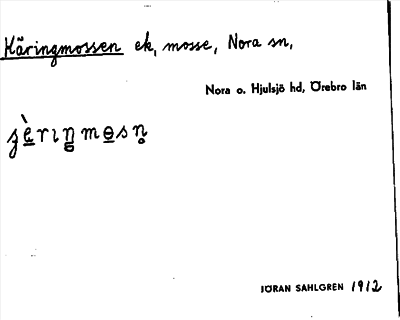 Käringmossen ek, mosse, Nora sn,
Nora o. Hjulsjö hd, Örebro län
JÖRAN SAHLGREN 1912